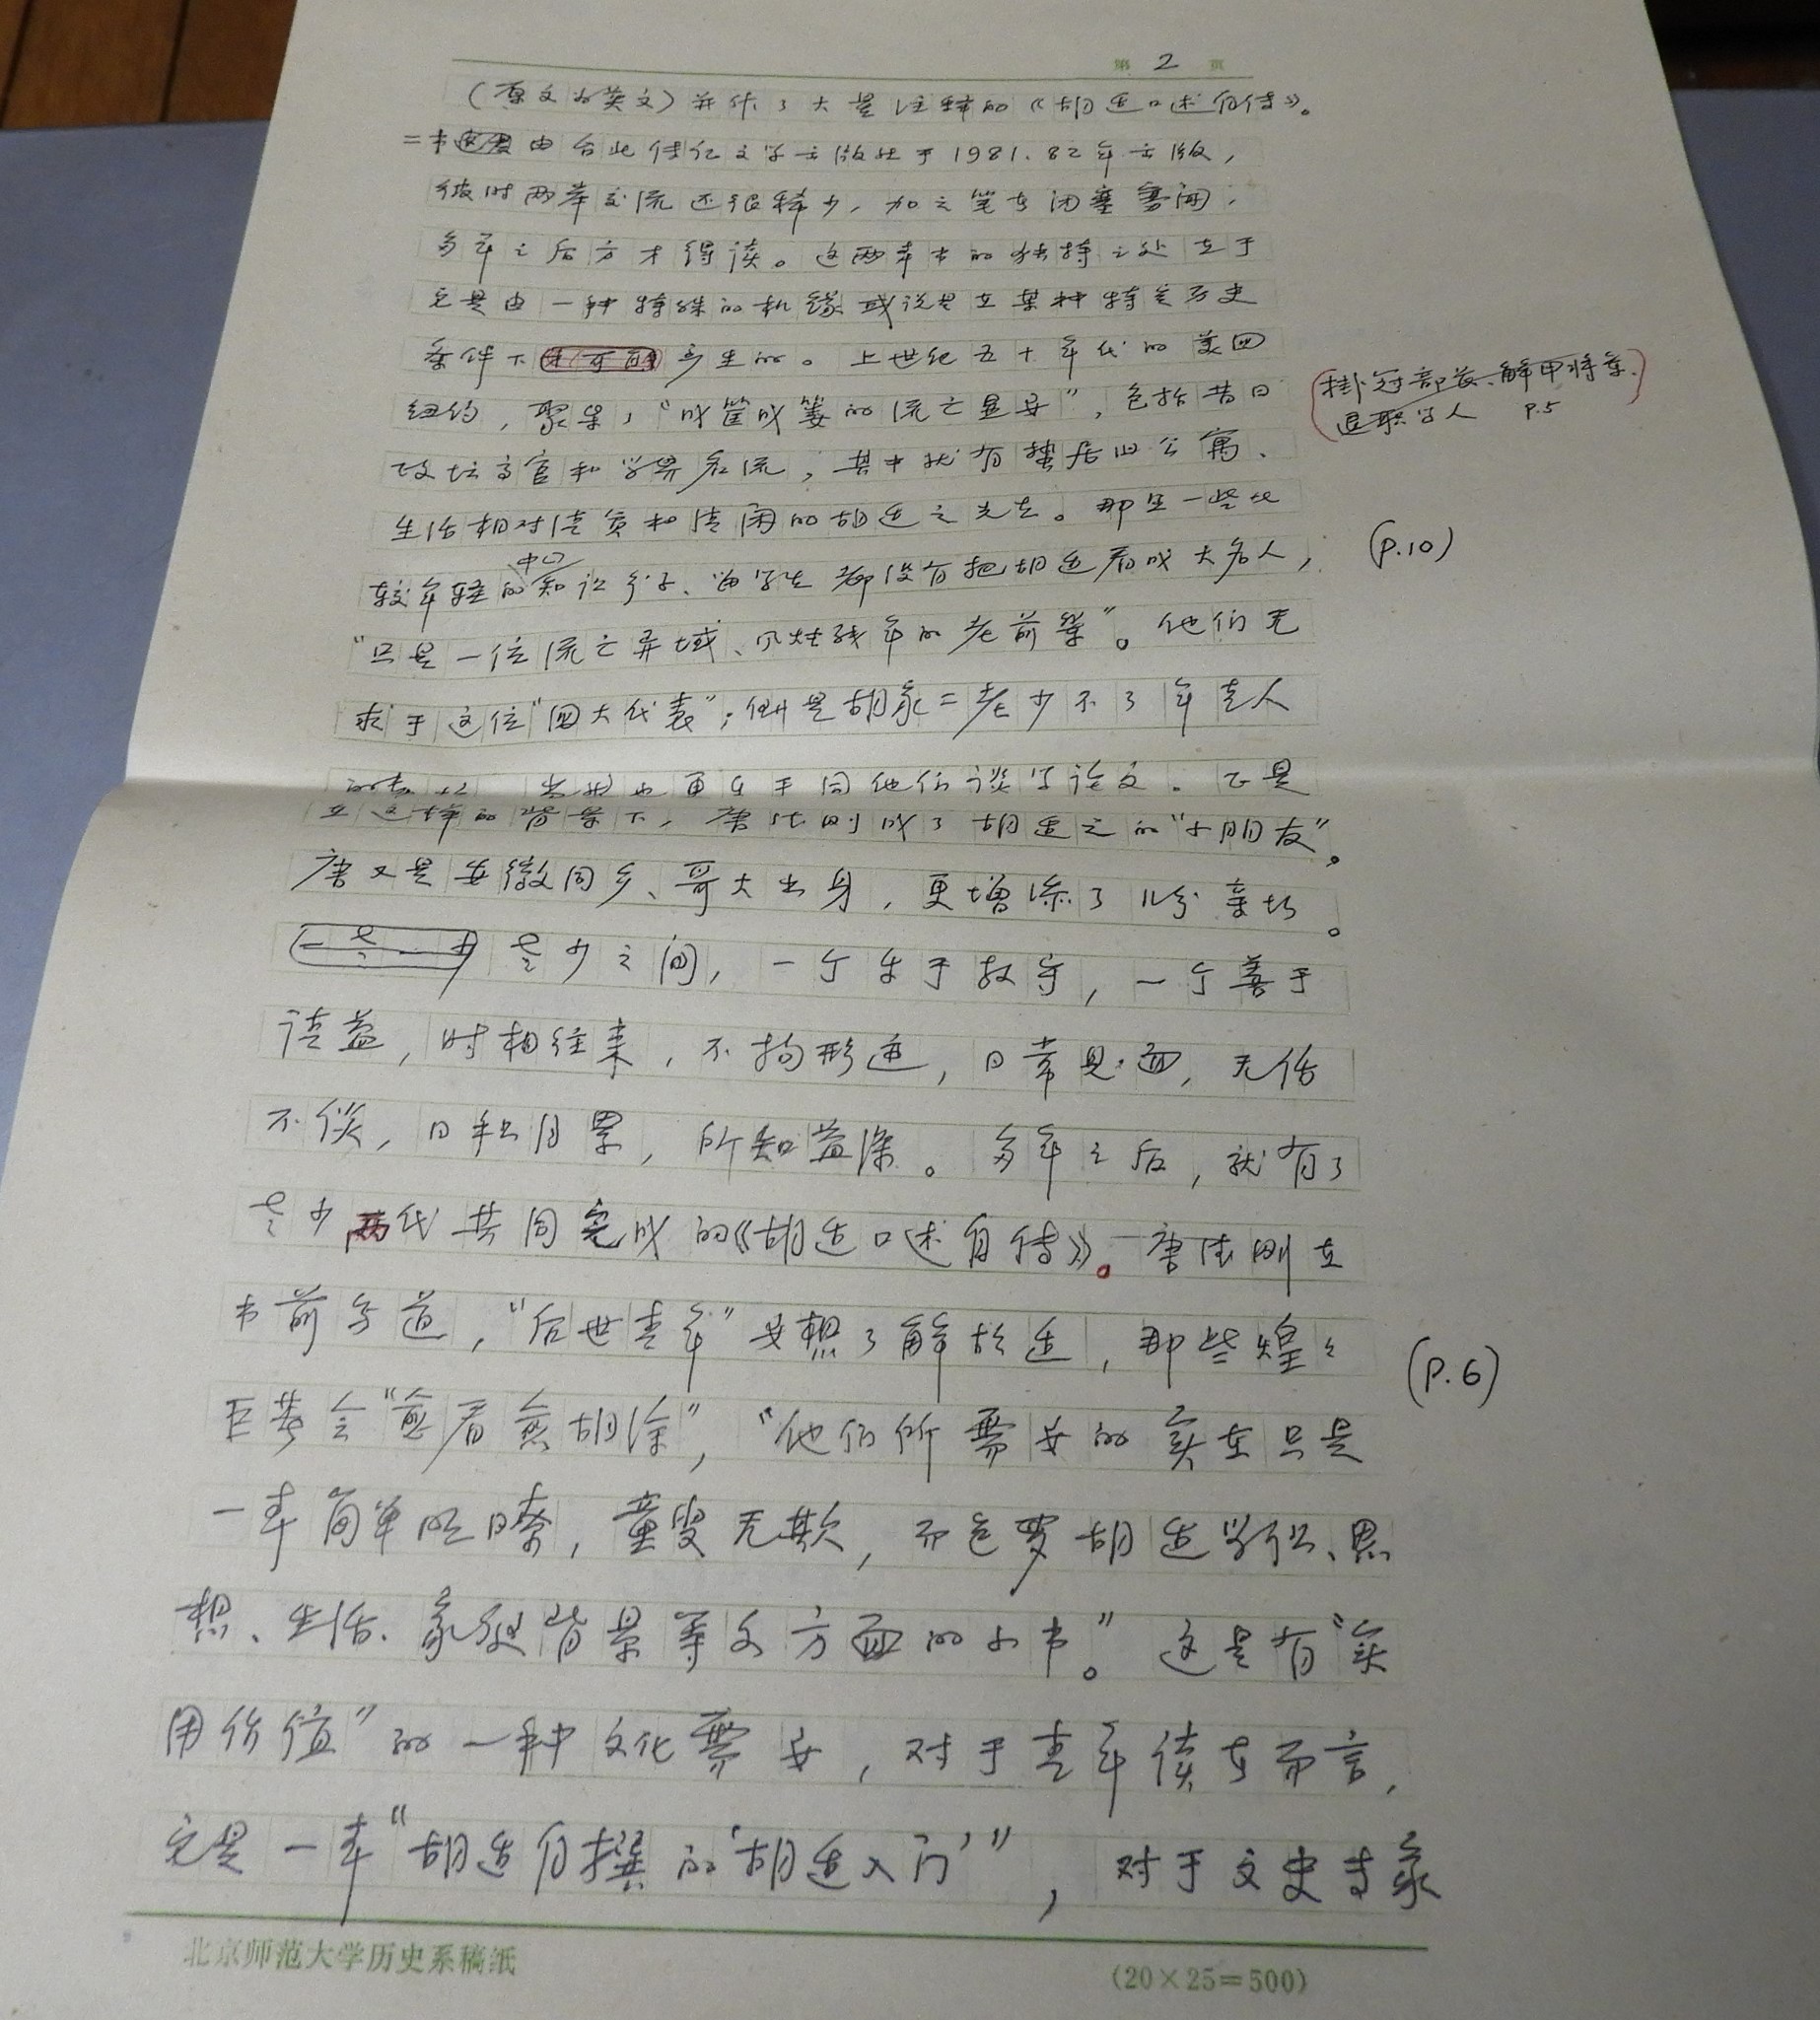 第 2 页
(原文为英文)并作了大量注释的《胡适口述自传》。
二书由台北传记文学出版社于1981.82年出版,
彼时两岸交流还很稀少,加之笔者闭塞寡闻,
多年之后方才得读。这两本书的独特之处在于
它是由一种特殊的机缘或说是在某种特定历史
条件下产生的。上世纪五十年代的美国
纽约,聚集了“成筐成篓的流亡显要”,包括昔日
(掛冠部長、解甲将军、
退职官人 P.5)
政坛高官和学界名流,其中就有蛰居旧公寓、
生活相对清贫和清闲的胡适之先生。那里一些比
较年轻的中国知识分子、留学生都没有把胡适看成大名人,
(P.10)
“只是一位流亡异域、风烛残年的老前辈”。他们无
求于这位“国大代表”;倒是胡家二老少不了年青人
当然也更乐于同他们谈学论文。正是
在这样的背景下,唐德刚成了胡适之的“小朋友”。
唐又是安徽同乡、哥大出身,更增添了几分亲切。
老少之间,一个乐于教导,一个善于
请益,时相往来,不拘形迹,日常见面,无话
不谈,日积月累,所知益深。多年之后,就有了
老少两代共同完成的《胡适口述自传》。唐德刚在
书前写道,“后世青年”要想了解胡适,那些煌々
巨著会“愈看愈胡涂”,“他们所需要的实在只是
(P.6)
一本简单明瞭,童叟无欺,而包罗胡适学识、思
想、生活、家庭背景等各方面的小书。”这是有“实
用价值”的一种文化需要,对于青年读者而言,
它是一本“胡适自撰的‘胡适入门’”,对于文史专家
北京师范大学历史系稿纸
(20×25=500)